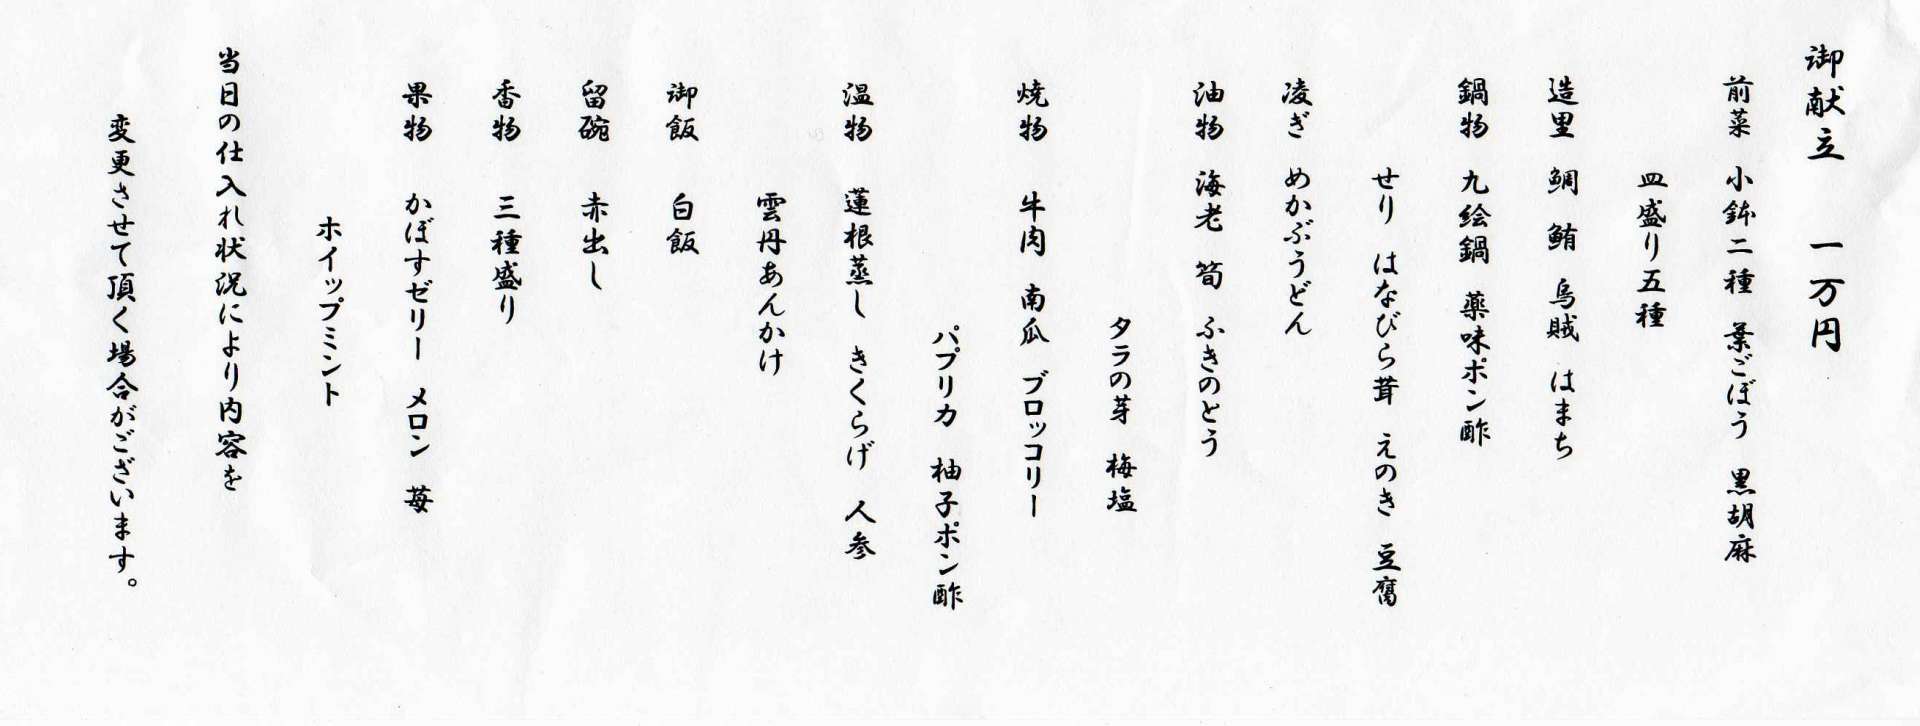 御献立　一万円
前菜　小鉢二種　葉ごぼう　黒胡麻
皿盛り五種
造里　鯛　鮪　烏賊　はまち
鍋物　九絵鍋　薬味ポン酢
せり　はなびら茸　えのき　豆腐
凌ぎ　めかぶうどん
油物　海老　筍　ふきのとう
タラの芽　梅塩
焼物　牛肉　南瓜　ブロッコリー
パプリカ　柚子ポン酢
温物　蓮根蒸し　きくらげ　人参
雲丹あんかけ
御飯　白飯
留碗　赤出し
香物　三種盛り
果物　かぼすゼリー　メロン　苺
ホイップミント
当日の仕入れ状況により内容を
変更させて頂く場合がございます。